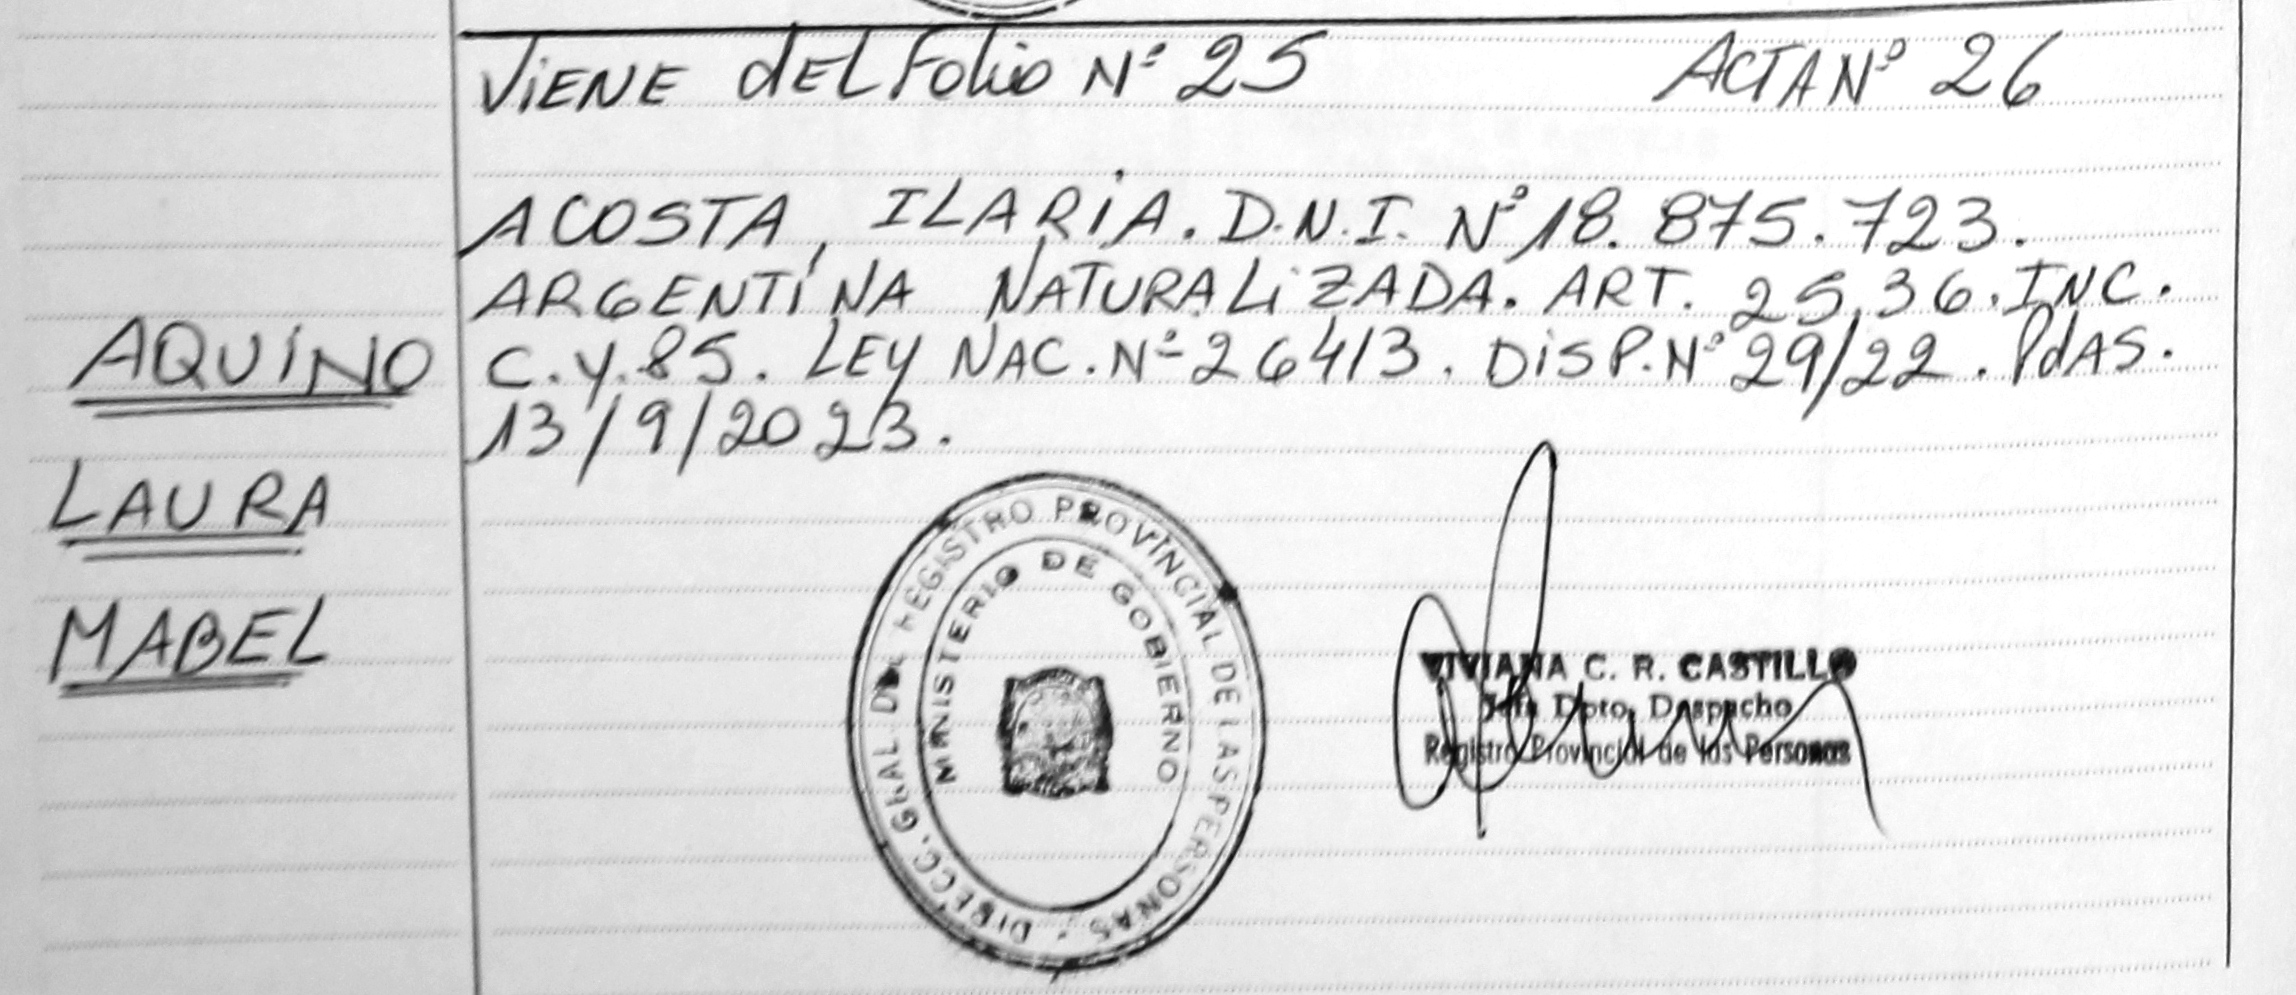 VIENE dEL Folio Nº 25 ACTA Nº 26
ACOSTA, ILARIA. D.N.I. Nº 18.875.723.
ARGENTINA NATURALIZADA. ART. 25,36. INC.
C. Y. 85. LEY NAC. Nº 26413. DISP. Nº 29/22. PdAS.
13/9/2023.
AQUINO
LAURA
MABEL
DIRECC. GRAL DEL REGISTRO PROVINCIAL DE LAS PERSONAS
MINISTERIO DE GOBIERNO
VIVIANA C. R. CASTILLO
Jefa Dpto. Despacho
Registro Provincial de las Personas